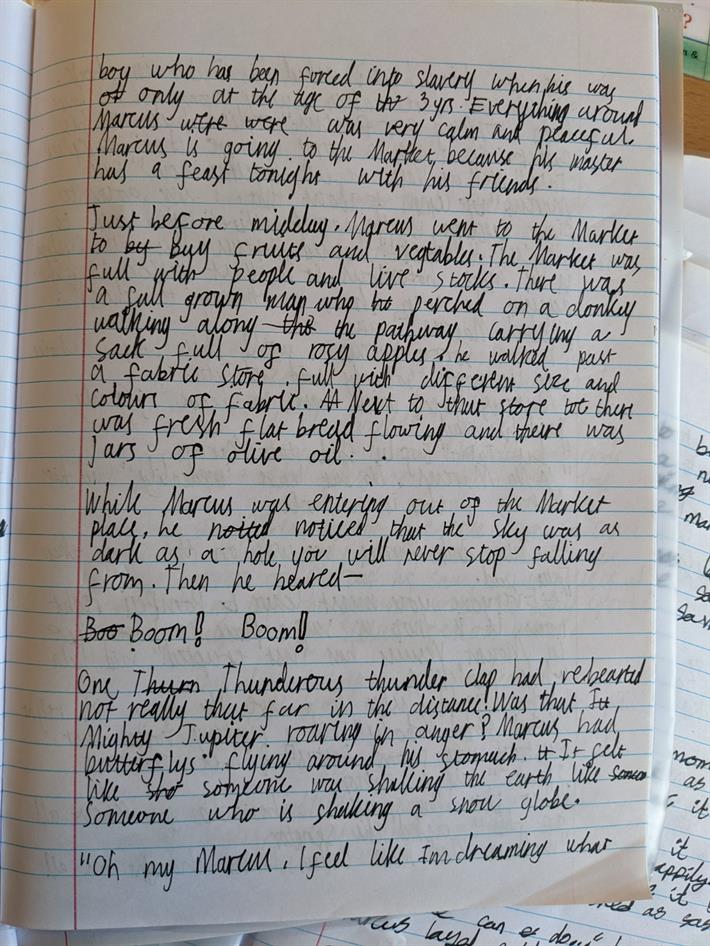 boy who has been forced into slavery when his was
only at the age of 3 yrs. Everything around
Marcus were were was very calm and peaceful.
Marcus is going to the Market, because his master
has a feast tonight with his friends.
Just before midday, Marcus went to the Market
to by buy fruits and vegtables. The Market was
full with people and live stocks. There was
a full grown man who perched on a donkey
walking along the the pathway carrying a
sack full of rosy apples, he walked past
a fabric store, full with different size and
colours of fabric. Next to that store there
was fresh flat bread flowing and there was
jars of olive oil.
While Marcus was entering out of the Market
place, he noitcd noticed that the sky was as
dark as a hole you will never stop falling
from. Then he heared—
Boo Boom! Boom!
One Thurn Thunderous thunder clap had
not really that far in the distance! Was that It
Mighty Jupiter roaring in anger? Marcus had
butterflys flying around his stomach. It It felt
like sho someone was shaking the earth like
someone who is shaking a snow globe.
"Oh my Marcus, I feel like Im dreaming what
?